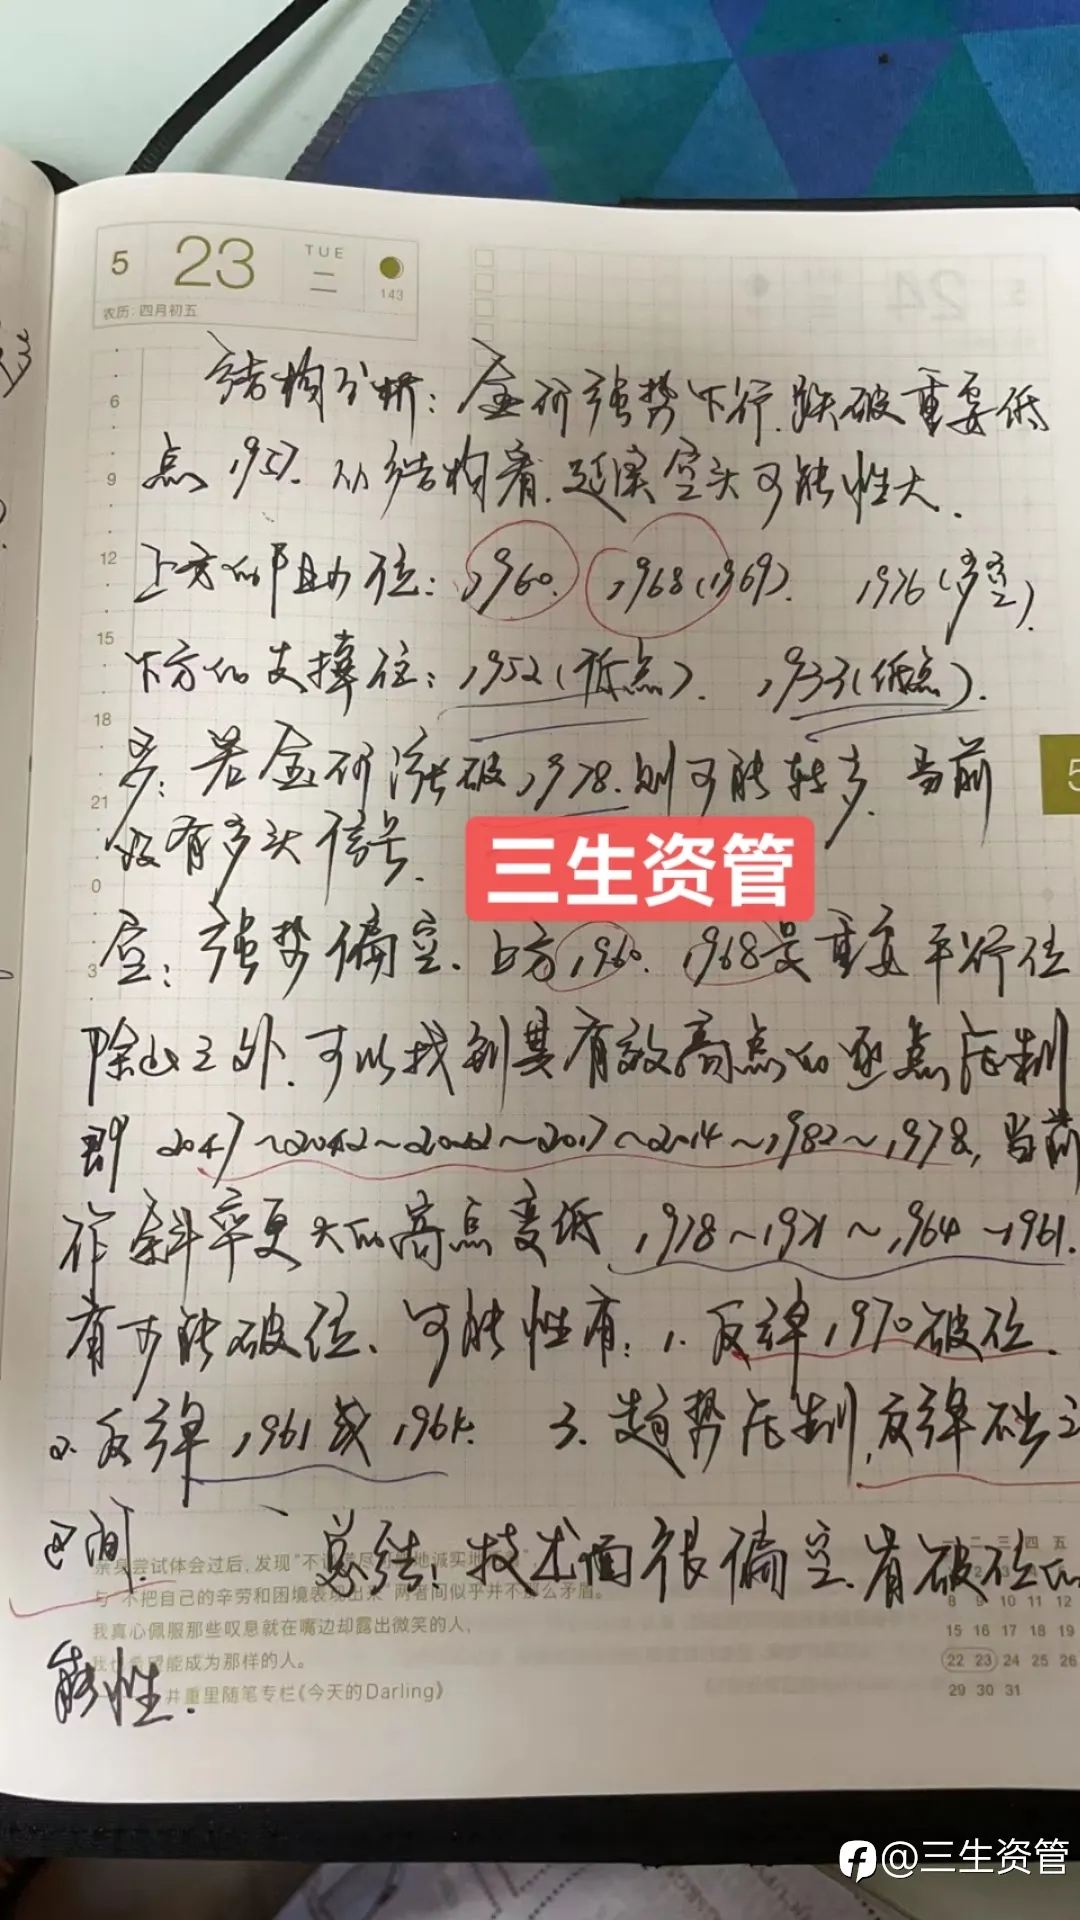 5 23 TUE 二 143
农历:四月初五
结构分析:金价强势下行.跌破重要低
点1957.从结构看.延续空头可能性大.
上方的阻力位:1960. 1968(1969). 1976(多空).
下方的支撑位:1952(低点). 1933(低点).
多:若金价涨破1978.则可能转多.当前
没有多头信号.
三生资管
空:强势偏空.上方1960. 1968是重要平行位
除此之外.可以找到其有效高点的逐点压制
即2047~2042~2022~2017~2014~1982~1978,当前
作斜率更大的高点变低 1978~1971~1964~1961.
有可能破位、可能性有:1.反弹1970破位.
2.反弹1961或1964. 3.趋势压制,反弹
区间. 总结:技术面很偏空.有破位的
能性.
6
9
12
15
18
21
0
3
5
亲身尝试体会过后,发现"不
与"不把自己的辛劳和困境表现出来"两者间似乎并不那么矛盾。
我真心佩服那些叹息就在嘴边却露出微笑的人,
我也希望能成为那样的人。
井重里随笔专栏《今天的Darling》
二 三 四 五
8 9 10 11 12
15 16 17 18 19
22 23 24 25 26
29 30 31
@三生资管